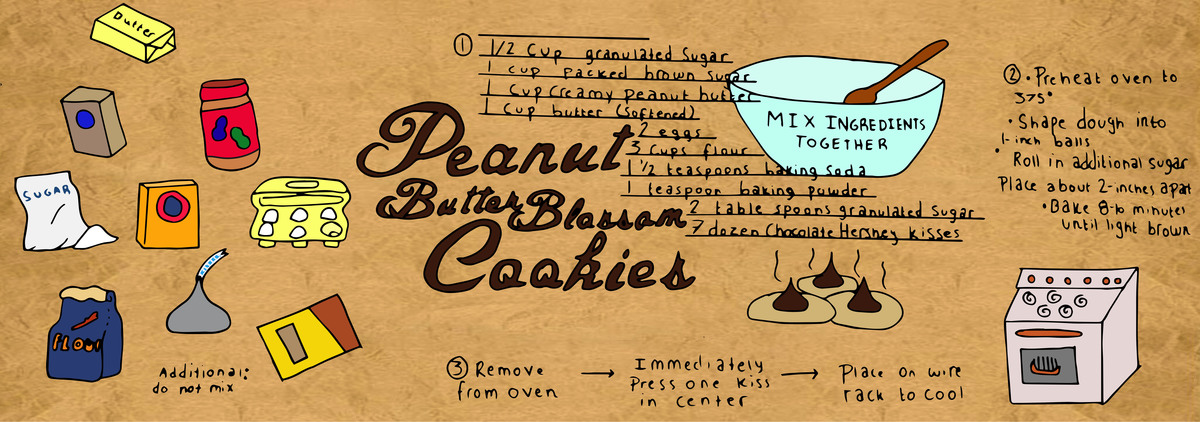 Butter
SUGAR
FLOUR
Additional:
do not mix
Peanut
Butter Blossom
Cookies
① 1/2 Cup granulated Sugar
1 cup packed brown sugar
1 Cup Creamy peanut butter
1 Cup butter (softened)
2 eggs
3 Cups flour
1 1/2 teaspoons baking Soda
1 teaspoon baking powder
2 table spoons granulated Sugar
7 dozen Chocolate Hershey kisses
MIX INGREDIENTS
TOGETHER
② • Preheat oven to
375°
• Shape dough into
1-inch balls
• Roll in additional sugar
Place about 2-inches apart
• Bake 8-10 minutes
until light brown
③ Remove
from oven
Immediately
Press one kiss
in center
Place on wire
rack to cool